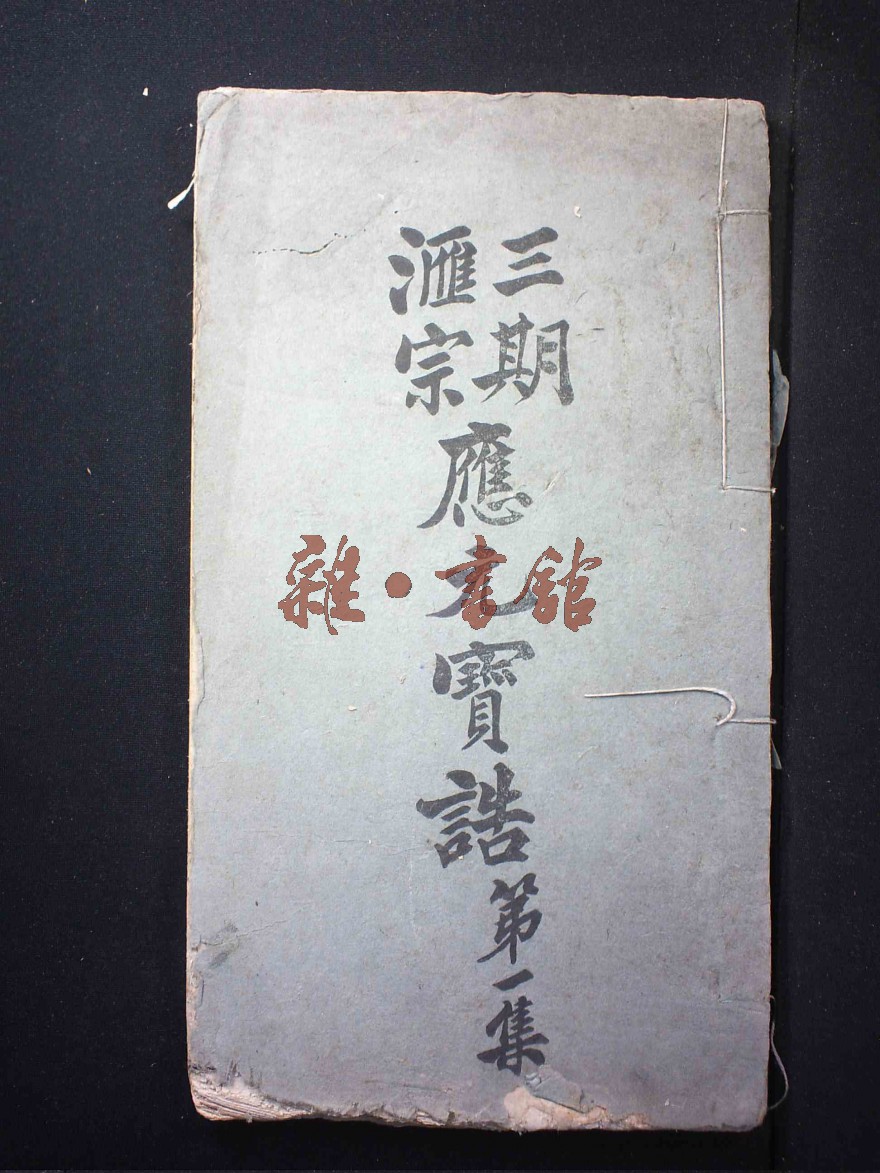 三期
滙宗
應元寶誥
第一集
雜·書舘